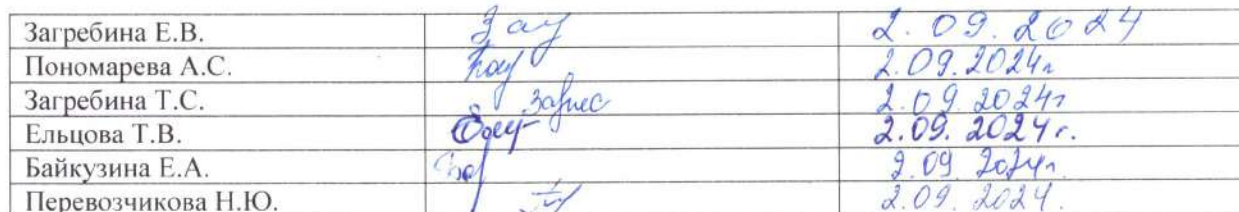 Загребина Е.В. 2.09.2024
Пономарева А.С. 2.09.2024г
Загребина Т.С. 2.09.2024г
Ельцова Т.В. 2.09.2024г.
Байкузина Е.А. 2.09.2024г.
Перевозчикова Н.Ю. 2.09.2024.